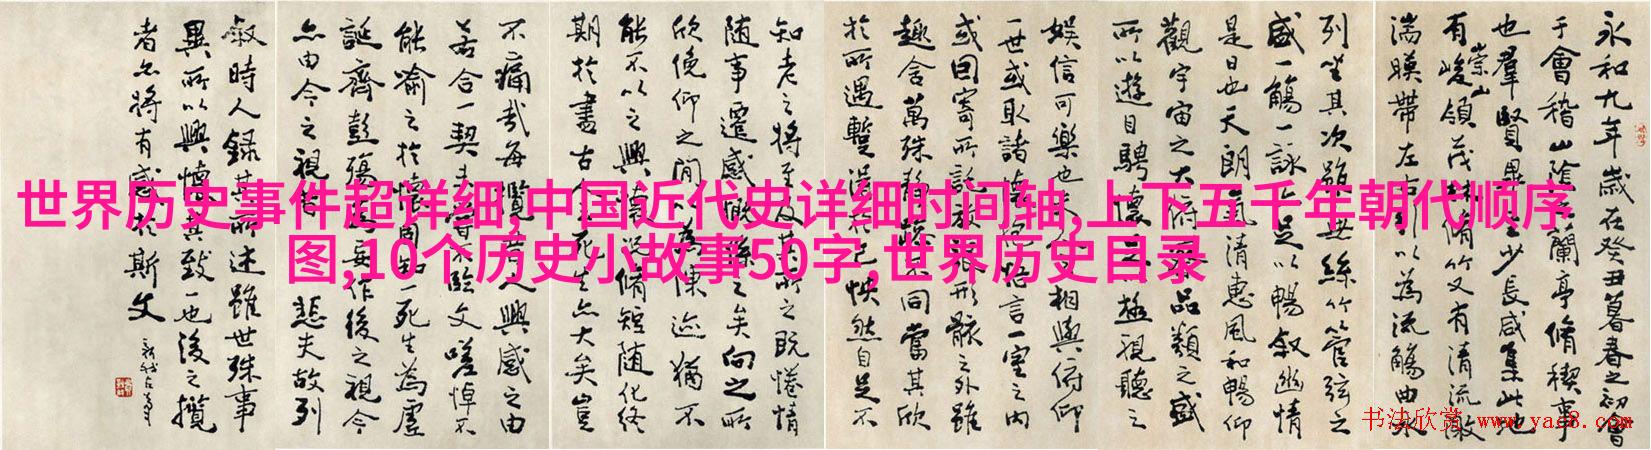 世界历史事件超详细,中国近代史详细时间轴,上下五千年朝代顺序
图,10个历史小故事50字,世界历史目录
永和九年歲在癸丑暮春之初會
于會稽山陰之蘭亭脩稧事
也羣賢畢至少長咸集此地
有崇山峻領茂林脩竹又有清流激
湍暎帶左右引以為流觴曲水
列坐其次雖無絲竹管弦之
盛一觴一詠亦足以暢敘幽情
是日也天朗氣清惠風和暢仰
觀宇宙之大俯察品類之盛
所以遊目騁懷足以極視聽之
娛信可樂也夫人之相與俯仰
一世或取諸懷抱悟言一室之內
或因寄所託放浪形骸之外雖
趣舍萬殊靜躁不同當其欣
於所遇暫得於己怏然自足不
知老之將至及其所之既惓情
隨事遷感慨係之矣向之所
欣俛仰之間以為陳迹猶不
能不以之興懷況脩短隨化終
期於盡古人云死生亦大矣豈
不痛哉每攬昔人興感之由
若合一契未嘗不臨文嗟悼不
能喻之於懷固知一死生為虛
誕齊彭殤為妄作後之視今
亦由今之視昔悲夫故列
敘時人錄其所述雖世殊事
異所以興懷其致一也後之攬
者亦將有感於斯文
书法欣赏 www.yac8.com